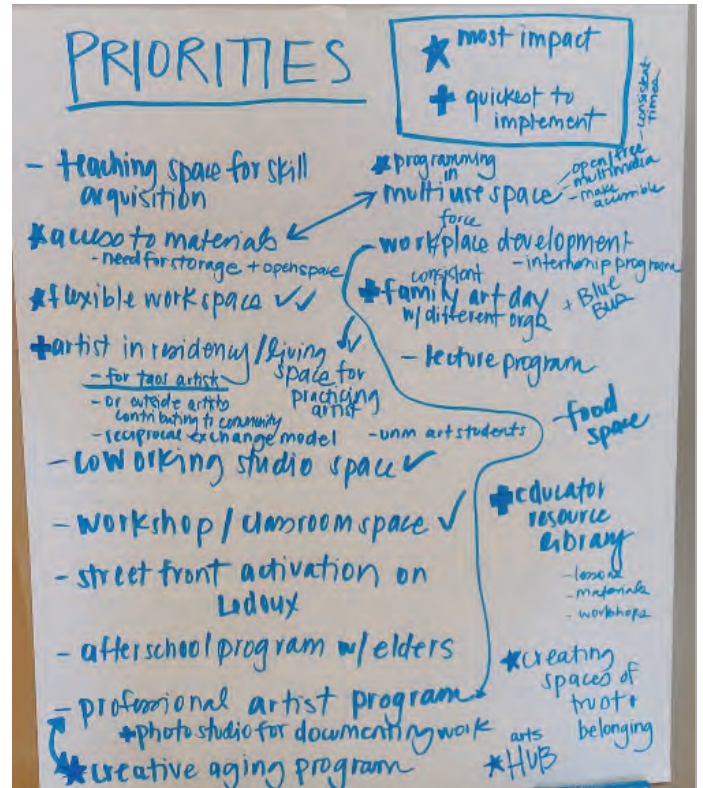 PRIORITIES
★ most impact
+ quickest to
implement
- teaching space for skill
acquisition
★ access to materials
- need for storage + open space
★ flexible workspace ✓✓
+ artist in residency/living
space for
practicing
artist
✓✓
- for taos artists
- or outside artists
contributing to community
- reciprocal exchange model
- coworking studio space ✓
- workshop/classroom space ✓
- street front activation on
Ledoux
- afterschool program w/ elders
- professional artist program
+ photo studio for documenting work
★ creative aging program
★ programming
in
multiuse space
- open/free
multimedia
- make
accessible
- consistent
times
force
- workplace development
- internship program
consistant
+ family art day
w/ different orgs
+ Blue
Bus
- lecture program
- unm art students
- food
space
+ educator
resource
library
- lessons
- materials
- workshops
★ creating
spaces of
trust +
belonging
arts
★ HUB